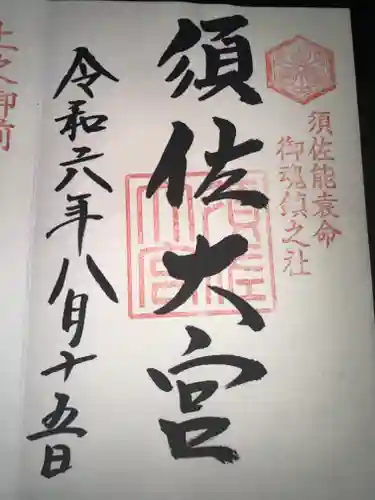 須佐能袁命
御魂鎮之社
須佐大宮
須佐大宮
令和六年八月十五日
之御前